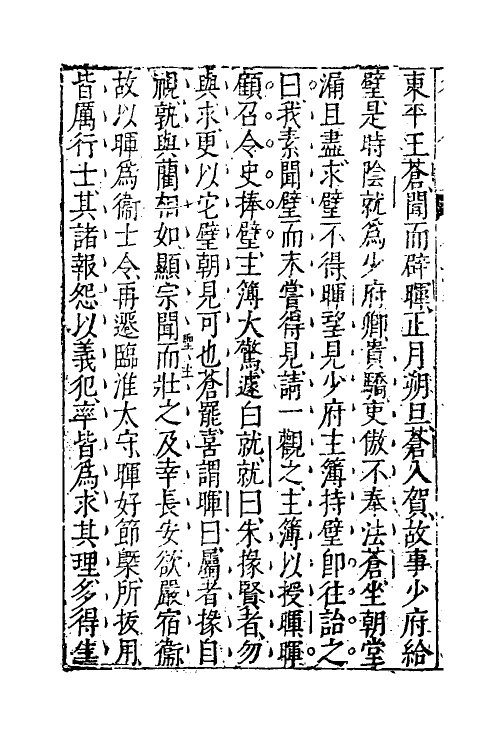 東平王蒼聞而辟暉正月朔旦蒼入賀故事少府給
璧是時陰就為少府卿貴驕吏傲不奉法蒼坐朝堂
漏且盡求璧不得暉望見少府主簿持璧卽往詒之
曰我素聞璧而未嘗得見請一觀之主簿以授暉暉
顧召令史捧璧主簿大驚遽白就就曰朱掾賢者勿
與求更以它璧朝見可也蒼罷喜謂暉曰屬者掾自
視孰與藺相如顯宗聞而壯之及幸長安欲嚴宿衞
聖主
故以暉為衞士令再遷臨淮太守暉好節槩所拔用
皆厲行士其諸報怨以義犯率皆為求其理多得生